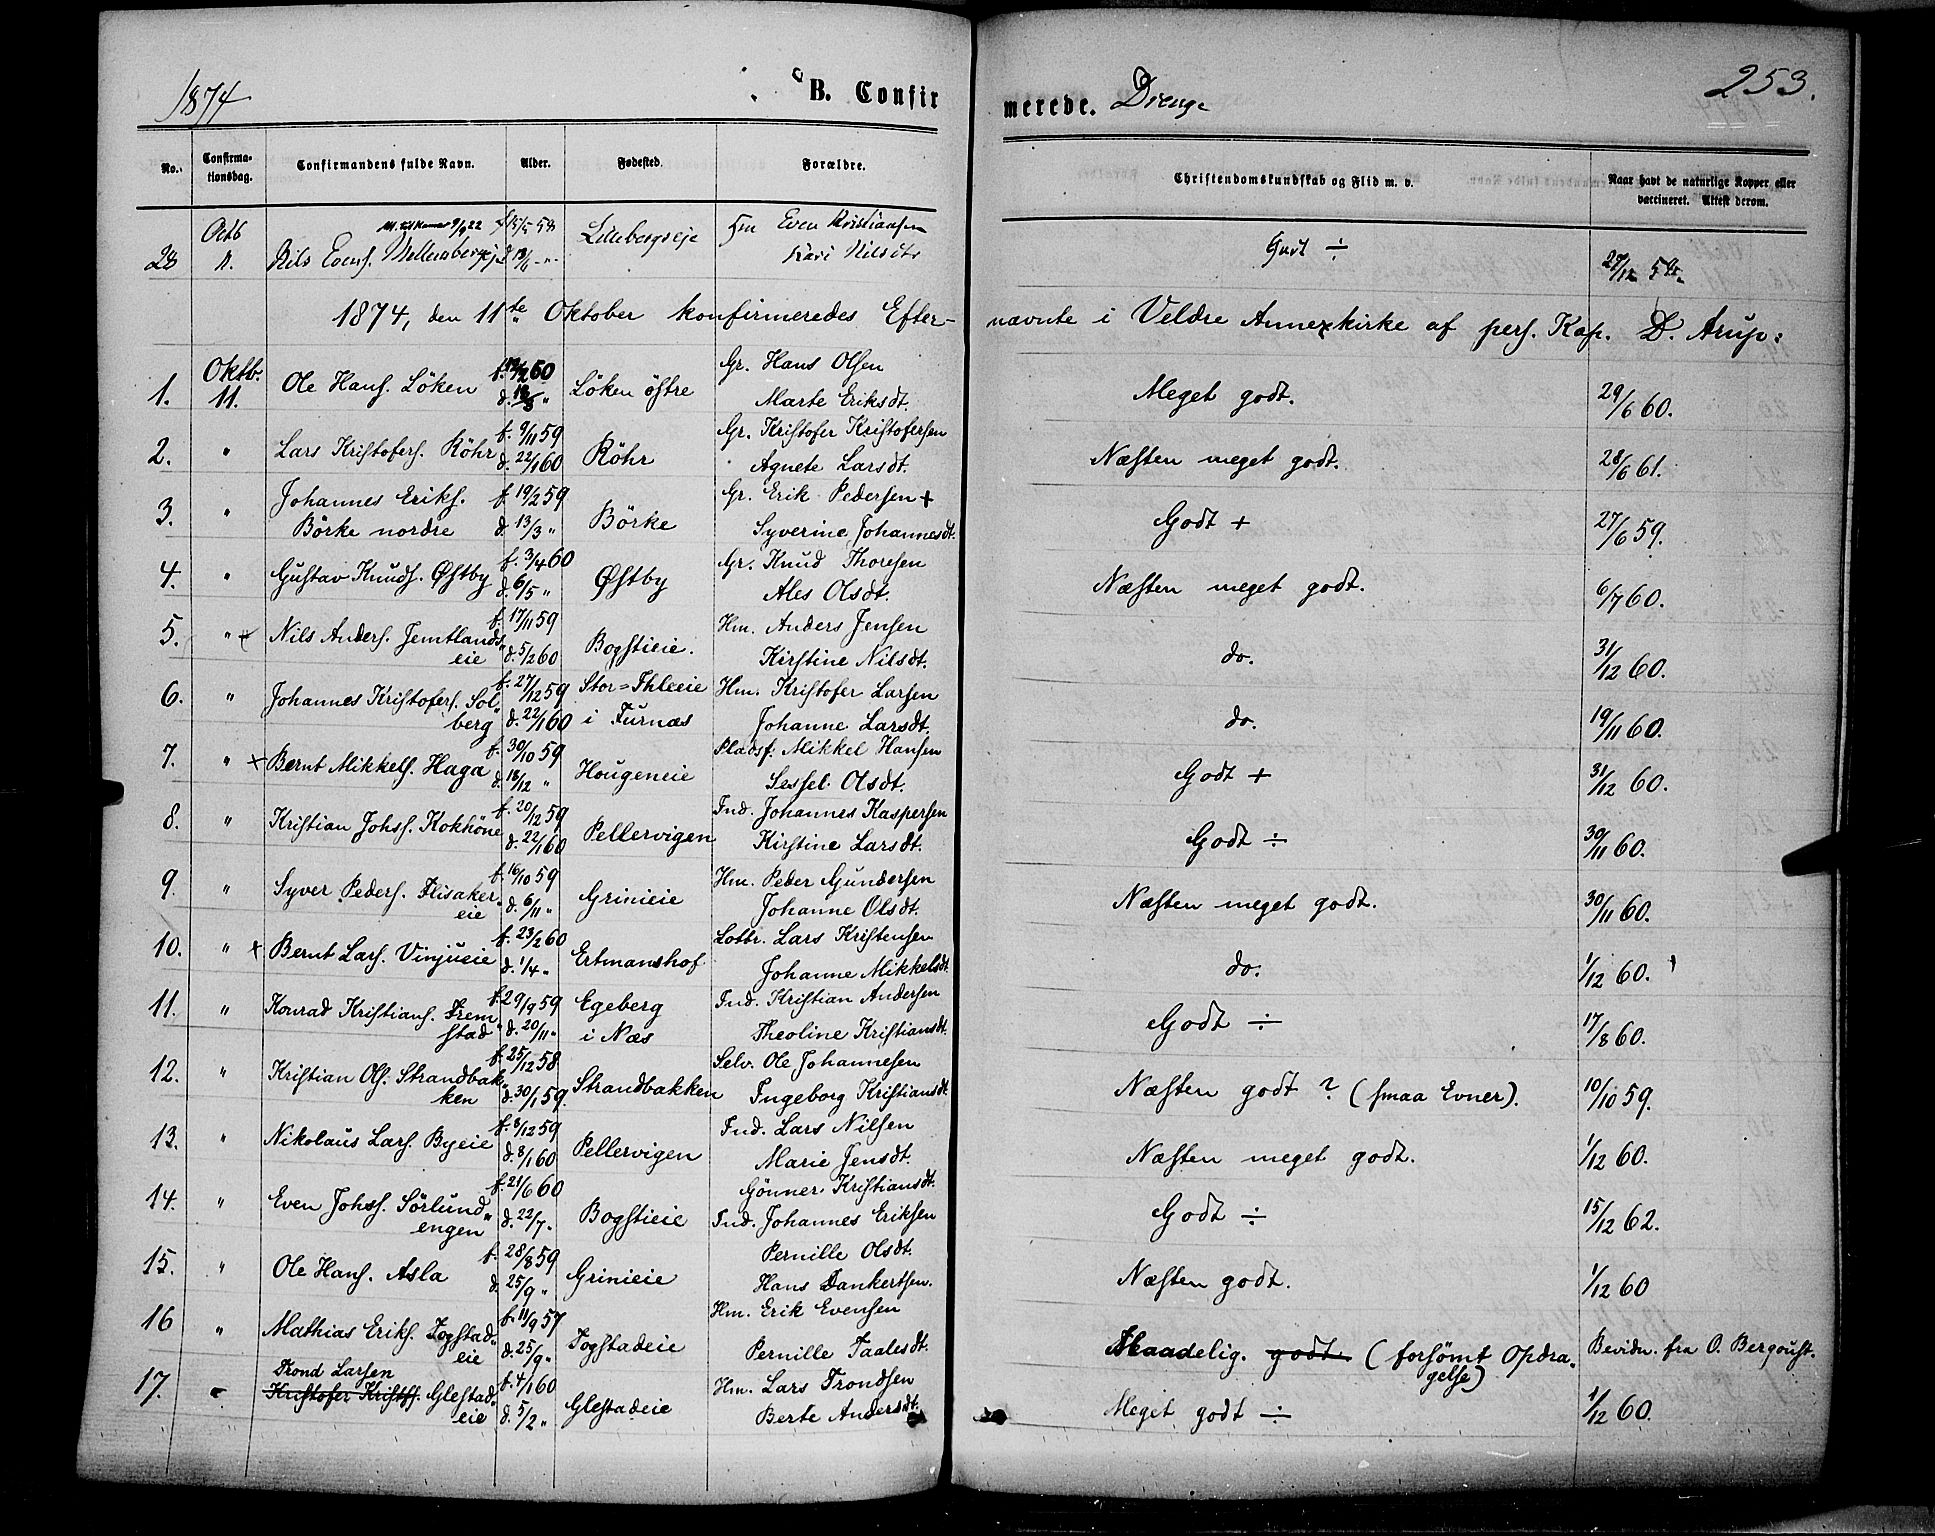 1874
B. Confirmerede. Drenge
253.
No.
Confirmationsdag.
Confirmandens fulde Navn.
Alder.
Fødested.
Forældre.
Christendomskundskab og Flid m. v.
Naar havt de naturlige Kopper eller vaccineret. Attest derom.
28 Octb 11. Nils Evens. f. 15/5 58 d. 13/6 -"- Lillebergseje Hm Even Kristiansen Kari Nilsdtr Godt ÷ 27/12 58.
1874, den 11te Oktober konfirmeredes Efternævnte i Veldre Annexkirke af pers. Kap. D. Arup:
1. Oktb. 11. Ole Hans. Löken f. 60 d. " Löken östre Gr. Hans Olsen Marte Eriksdt. Meget godt. 29/6 60.
2. " Lars Kristofers. Röhr f. 9/11 59 d. 22/1 60 Röhr Gr. Kristofer Kristofersen Agnete Larsdt. Næsten meget godt. 28/6 61.
3. " Johannes Eriks. Börke nordre f. 19/2 59 d. 13/3 " Börke Gr. Erik Pedersen + Syverine Johannesdt. Godt + 27/6 59.
4. " Gustav Knuds. Østby f. 3/4 60 d. 6/5 " Østby Gr. Knud Thoresen Ales Olsdt. Næsten meget godt. 6/7 60.
5. " + Nils Anders. Jemtlandseie f. 17/11 59 d. 5/2 60 Bogstieie. Hm. Anders Jensen Kirstine Nilsdt. do. 31/12 60.
6. " Johannes Kristofers. Solberg f. 27/12 59 d. 22/1 60 Stor=Ihleeie i Furnæs Hm. Kristofer Larsen Johanne Larsdt. do. 19/11 60.
7. " + Bernt Mikkels. Haga f. 30/10 59 d. 18/12 " Hougeneie Pladsf. Mikkel Hansen Sessel Olsdt. Godt + 31/12 60.
8. " Kristian Johss. Kokhöne f. 20/12 59 d. 22/1 60 Pellervigen Ind. Johannes Kaspersen Kirstine Larsdt. Godt ÷ 30/11 60.
9. " Syver Peders. Flisakereie f. 16/10 59 d. 6/11 " Grinieie Hm. Peder Gundersen Johanne Olsdt. Næsten meget godt. 30/11 60.
10. " + Bernt Lars. Vinjueie f. 23/2 60 d. 1/4 " Ertmanshof Lottr. Lars Kristensen Johanne Mikkelsdt. do. 1/12 60.
11. " Konrad Kristians. Fremstad f. 29/9 59 d. 20/11 " Egeberg i Næs Ind. Kristian Andersen Theoline Kristiansdt. Godt ÷ 17/8 60.
12. " Kristian Ols. Strandbakken f. 25/12 58 d. 30/1 59. Strandbakken Selv. Ole Johannesen Ingeborg Kristiansdt. Næsten godt ? (smaa Evner). 10/10 59.
13. " Nikolaus Lars. Byeie f. 8/12 59 d. 8/1 60 Pellervigen Ind. Lars Nilsen Marie Jensdt. Næsten meget godt. 1/12 60.
14. " Even Johss. Sörlundengen f. 21/6 60 d. 22/7 " Bogstieie Gönner Kristiansdt. Ind. Johannes Eriksen Godt ÷ 15/12 62.
15. " Ole Hans. Asla f. 28/8 59 d. 25/9 " Grinieie Pernille Olsdt. Hans Dankertsen. Næsten godt. 1/12 60
16 " Mathias Eriks. Togstadeie f. 11/9 57 d. 25/9 " Togstadeie Hm. Erik Evensen Pernille Taalesdt. Maadelig. godt (forsömt Opdragelse) Bevidn. fra O. Bergqvist.
17. " Trond Larsen Kristofer Kristff. Glestadeie f. 4/1 60 d. 5/2 " Glestadeie Hm. Lars Trondsen Berte Andersdt. Meget godt ÷ 1/12 60.